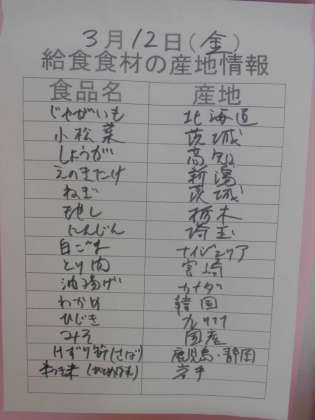 3月12日(金)
給食食材の産地情報
食品名 産地
じゃがいも 北海道
小松菜 茨城
しょうが 高知
えのきたけ 新潟
ねぎ 茨城
もやし 栃木
にんじん 埼玉
白ごま ナイジェリア
とり肉 宮崎
油揚げ カナダ
わかめ 韓国
ひじき
みそ 国産
けずり節(さば) 鹿児島・静岡
岩手